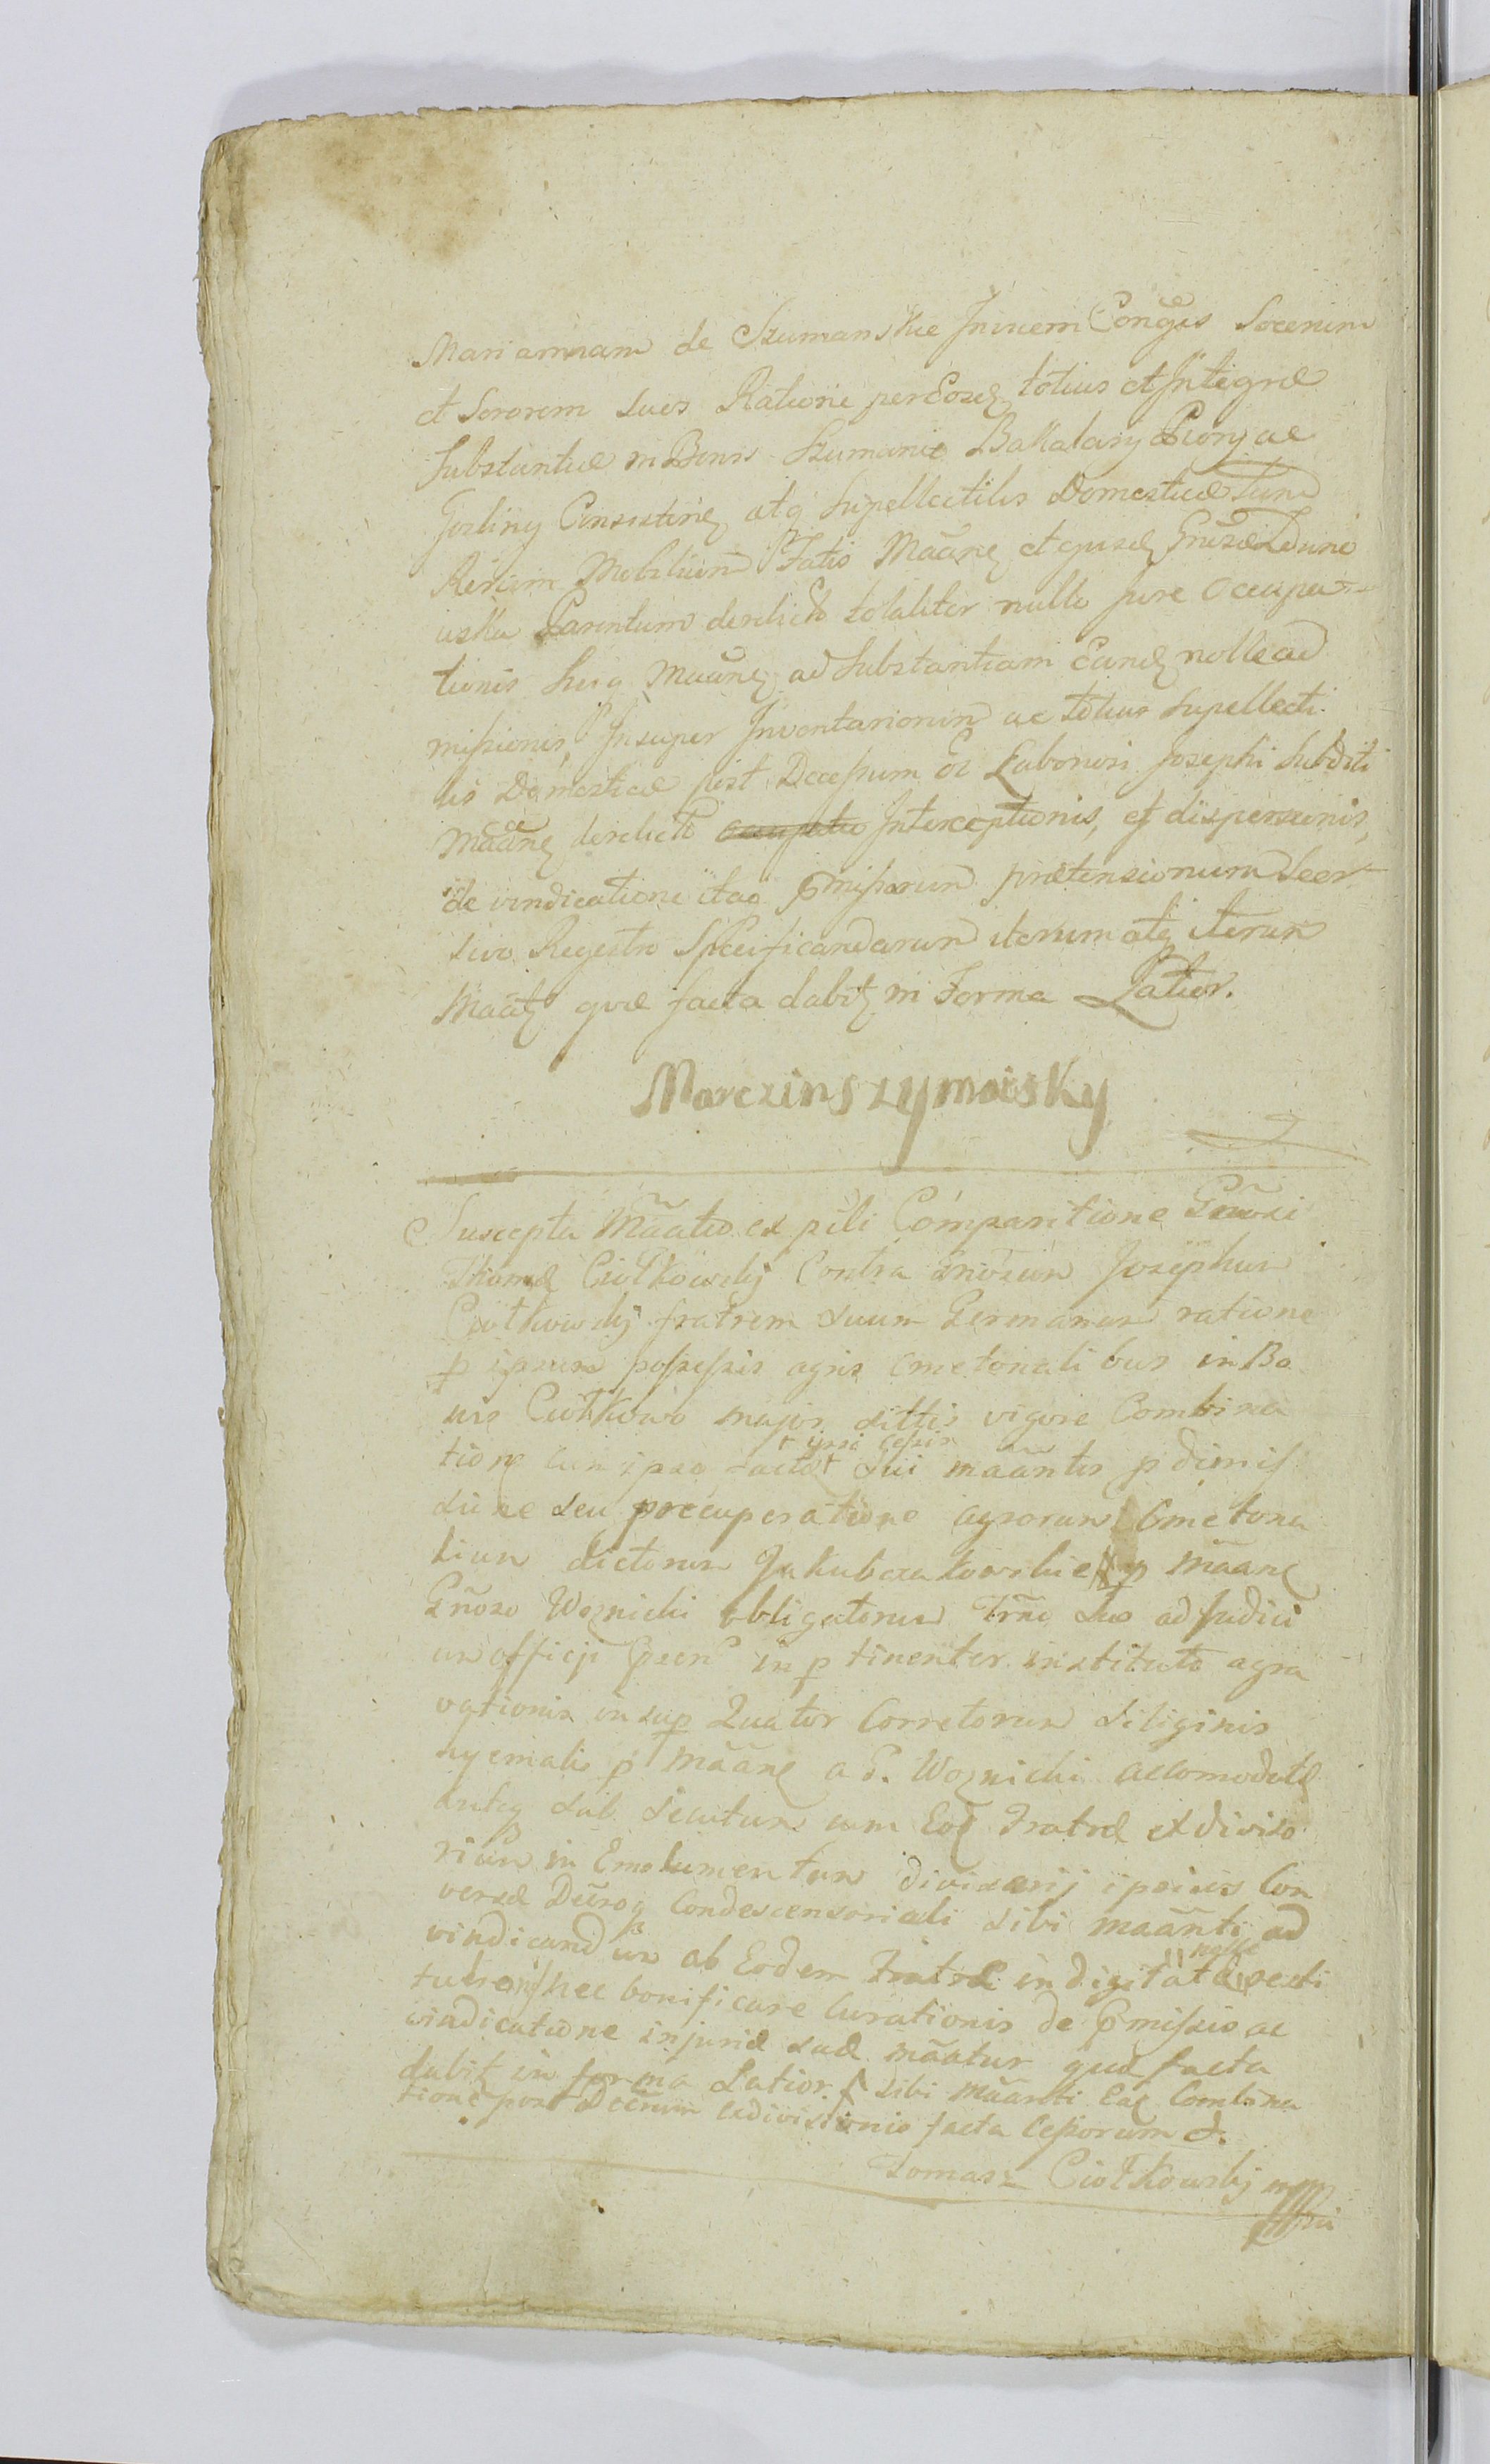 Mariannam de Szumanskie Invicem Conges Socerum
et Sororem suos Ratione per Eosdē totius et Integræ
Substantiæ in Bonis Szumanie Bakalary Piory ac
Gosliny Consistenē atq Supellectilis Domesticæ tum
Rerum Mobilium Fatis Māanē et ejusdē
Parentum derelictæ totaliter nullo jure Occupa-
tionis Suiq Māanē ad Substantiam Eandē nolle ad
missionis, Insuper Inventariorum ac totius Supellecti
lis Domesticæ post Decessum Laboriosi Josephi Subditi
Māanē derelictæ Interceptionis, et dispersionis,
de vindicatione itaq pmissorum prætensionum
sivo Regestro Specificandarum iterum atq iterum
Māatē quæ facta dabitē in Forma Latior.
Marczin szymaisky
Suscepta Māatio ex psli Comparitione Gñosi
Thomæ Ciołkowskij Contra Gnosum Josephum
Ciołkowskij fratrem suum Germanum ratione
p ipsum possessis agris Cmetonalibus in Bo
nis Ciołkowo major sittis vigore Combina
† ipsi cessis
tione cum ipso factæ† sui māantis p dimis
sione seu præcuperatione agrorum Cmetona
lium dictorum Jakubczakowskie p māanē
Gñoso Woznicki obligatorum Trño suo ad Judici
um officji in p tinenter instituto agra
vationis insup Quatuor Corretorum siliginis
hyemalis p māanē a G. Woznicki accomodatæ
sub secutum cum Eodē Fratre ex diviso
rium in Emolumentum divisorij ipsius Con
versæ Condescensoriali sibi maanti ad
vindicandum ab Eodem Fratre indigitatæ
nec bonificare curationis de pmissis ac
vindicatione injuriæ suæ māatur quæ facta
dabit in forma Latior. sibi māanti Eaē Combina
tione post Decrum exdivisionis facta cessorum &.
Tomasz Ciołkowskij mpp